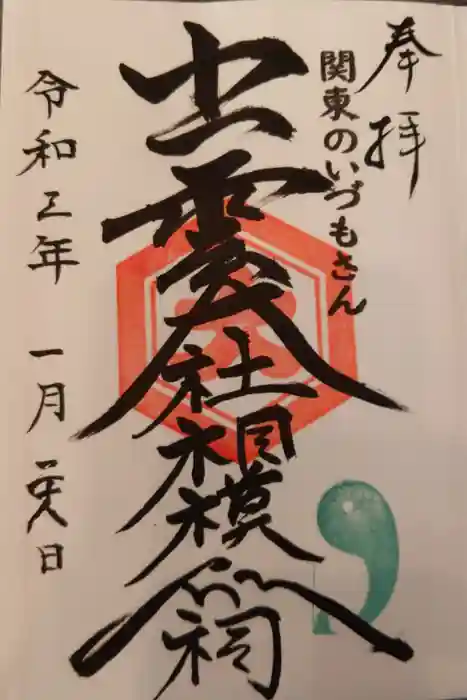 奉拝
関東のいづもさん
出雲大社相模分祠
令和三年 一月二十八日